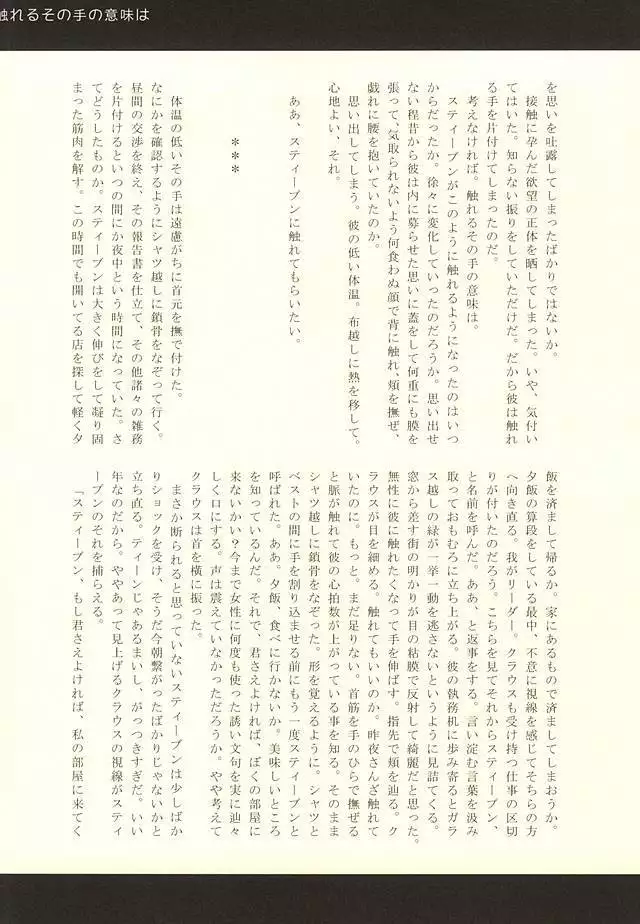 触れるその手の意味は
を思いを吐露してしまったばかりではないか。
接触に孕んだ欲望の正体を晒してしまった。いや、気付い
てはいた。知らない振りをしていただけだ。だから彼は触れ
る手を片付けてしまったのだ。
考えなければ。触れるその手の意味は。
スティーブンがこのように触れるようになったのはいつ
からだったか。徐々に変化していったのだろうか。思い出せ
ない程昔から彼は内に募らせた思いに蓋をして何重にも膜を
張って、気取られないよう何食わぬ顔で背に触れ、頬を撫ぜ、
戯れに腰を抱いていたのか。
思い出してしまう。彼の低い体温。布越しに熱を移して。
心地よい、それ。
ああ、スティーブンに触れてもらいたい。
***
体温の低いその手は遠慮がちに首元を撫で付けた。
なにかを確認するようにシャツ越しに鎖骨をなぞって行く。
昼間の交渉を終え、その報告書を仕立て、その他諸々の雑務
を片付けるといつの間にか夜中という時間になっていた。さ
てどうしたものか。スティーブンは大きく伸びをして凝り固
まった筋肉を解す。この時間でも開いてる店を探して軽く夕
飯を済まして帰るか。家にあるもので済ましてしまおうか。
夕飯の算段をしている最中、不意に視線を感じてそちらの方
へ向き直る。我がリーダー。クラウスも受け持つ仕事の区切
りが付いたのだろう。こちらを見てそれからスティーブン、
と名前を呼んだ。ああ、と返事をする。言い淀む言葉を汲み
取っておもむろに立ち上がる。彼の執務机に歩み寄るとガラ
ス越しの緑が一挙一動を逃さないというように見詰てくる。
窓から差す街の明かりが目の粘膜で反射して綺麗だと思った。
無性に彼に触れたくなって手を伸ばす。指先で頬を辿る。ク
ラウスが目を細める。触れてもいいのか。昨夜さんざ触れて
いたのに。もっと。まだ足りない。首筋を手のひらで撫ぜる
と脈が触れて彼の心拍数が上がっている事を知る。そのまま
シャツ越しに鎖骨をなぞった。形を覚えるように。シャツと
ベストの間に手を割り込ませる前にもう一度スティーブンと
呼ばれた。ああ。夕飯、食べに行かないか。美味しいところ
を知っているんだ。それで、君さえよければ、ぼくの部屋に
来ないかい?今まで女性に何度も使った誘い文句を実に辿々
しく口にする。声は震えていなかっただろうか。やや考えて
クラウスは首を横に振った。
まさか断られると思っていないスティーブンは少しばか
りショックを受け、そうだ今朝繋がったばかりじゃないかと
立ち直る。ティーンじゃあるまいし、がっつきすぎだ。いい
年なのだから。ややあって見上げるクラウスの視線がスティ
ーブンのそれを捕らえる。
「スティーブン、もし君さえよければ、私の部屋に来てく